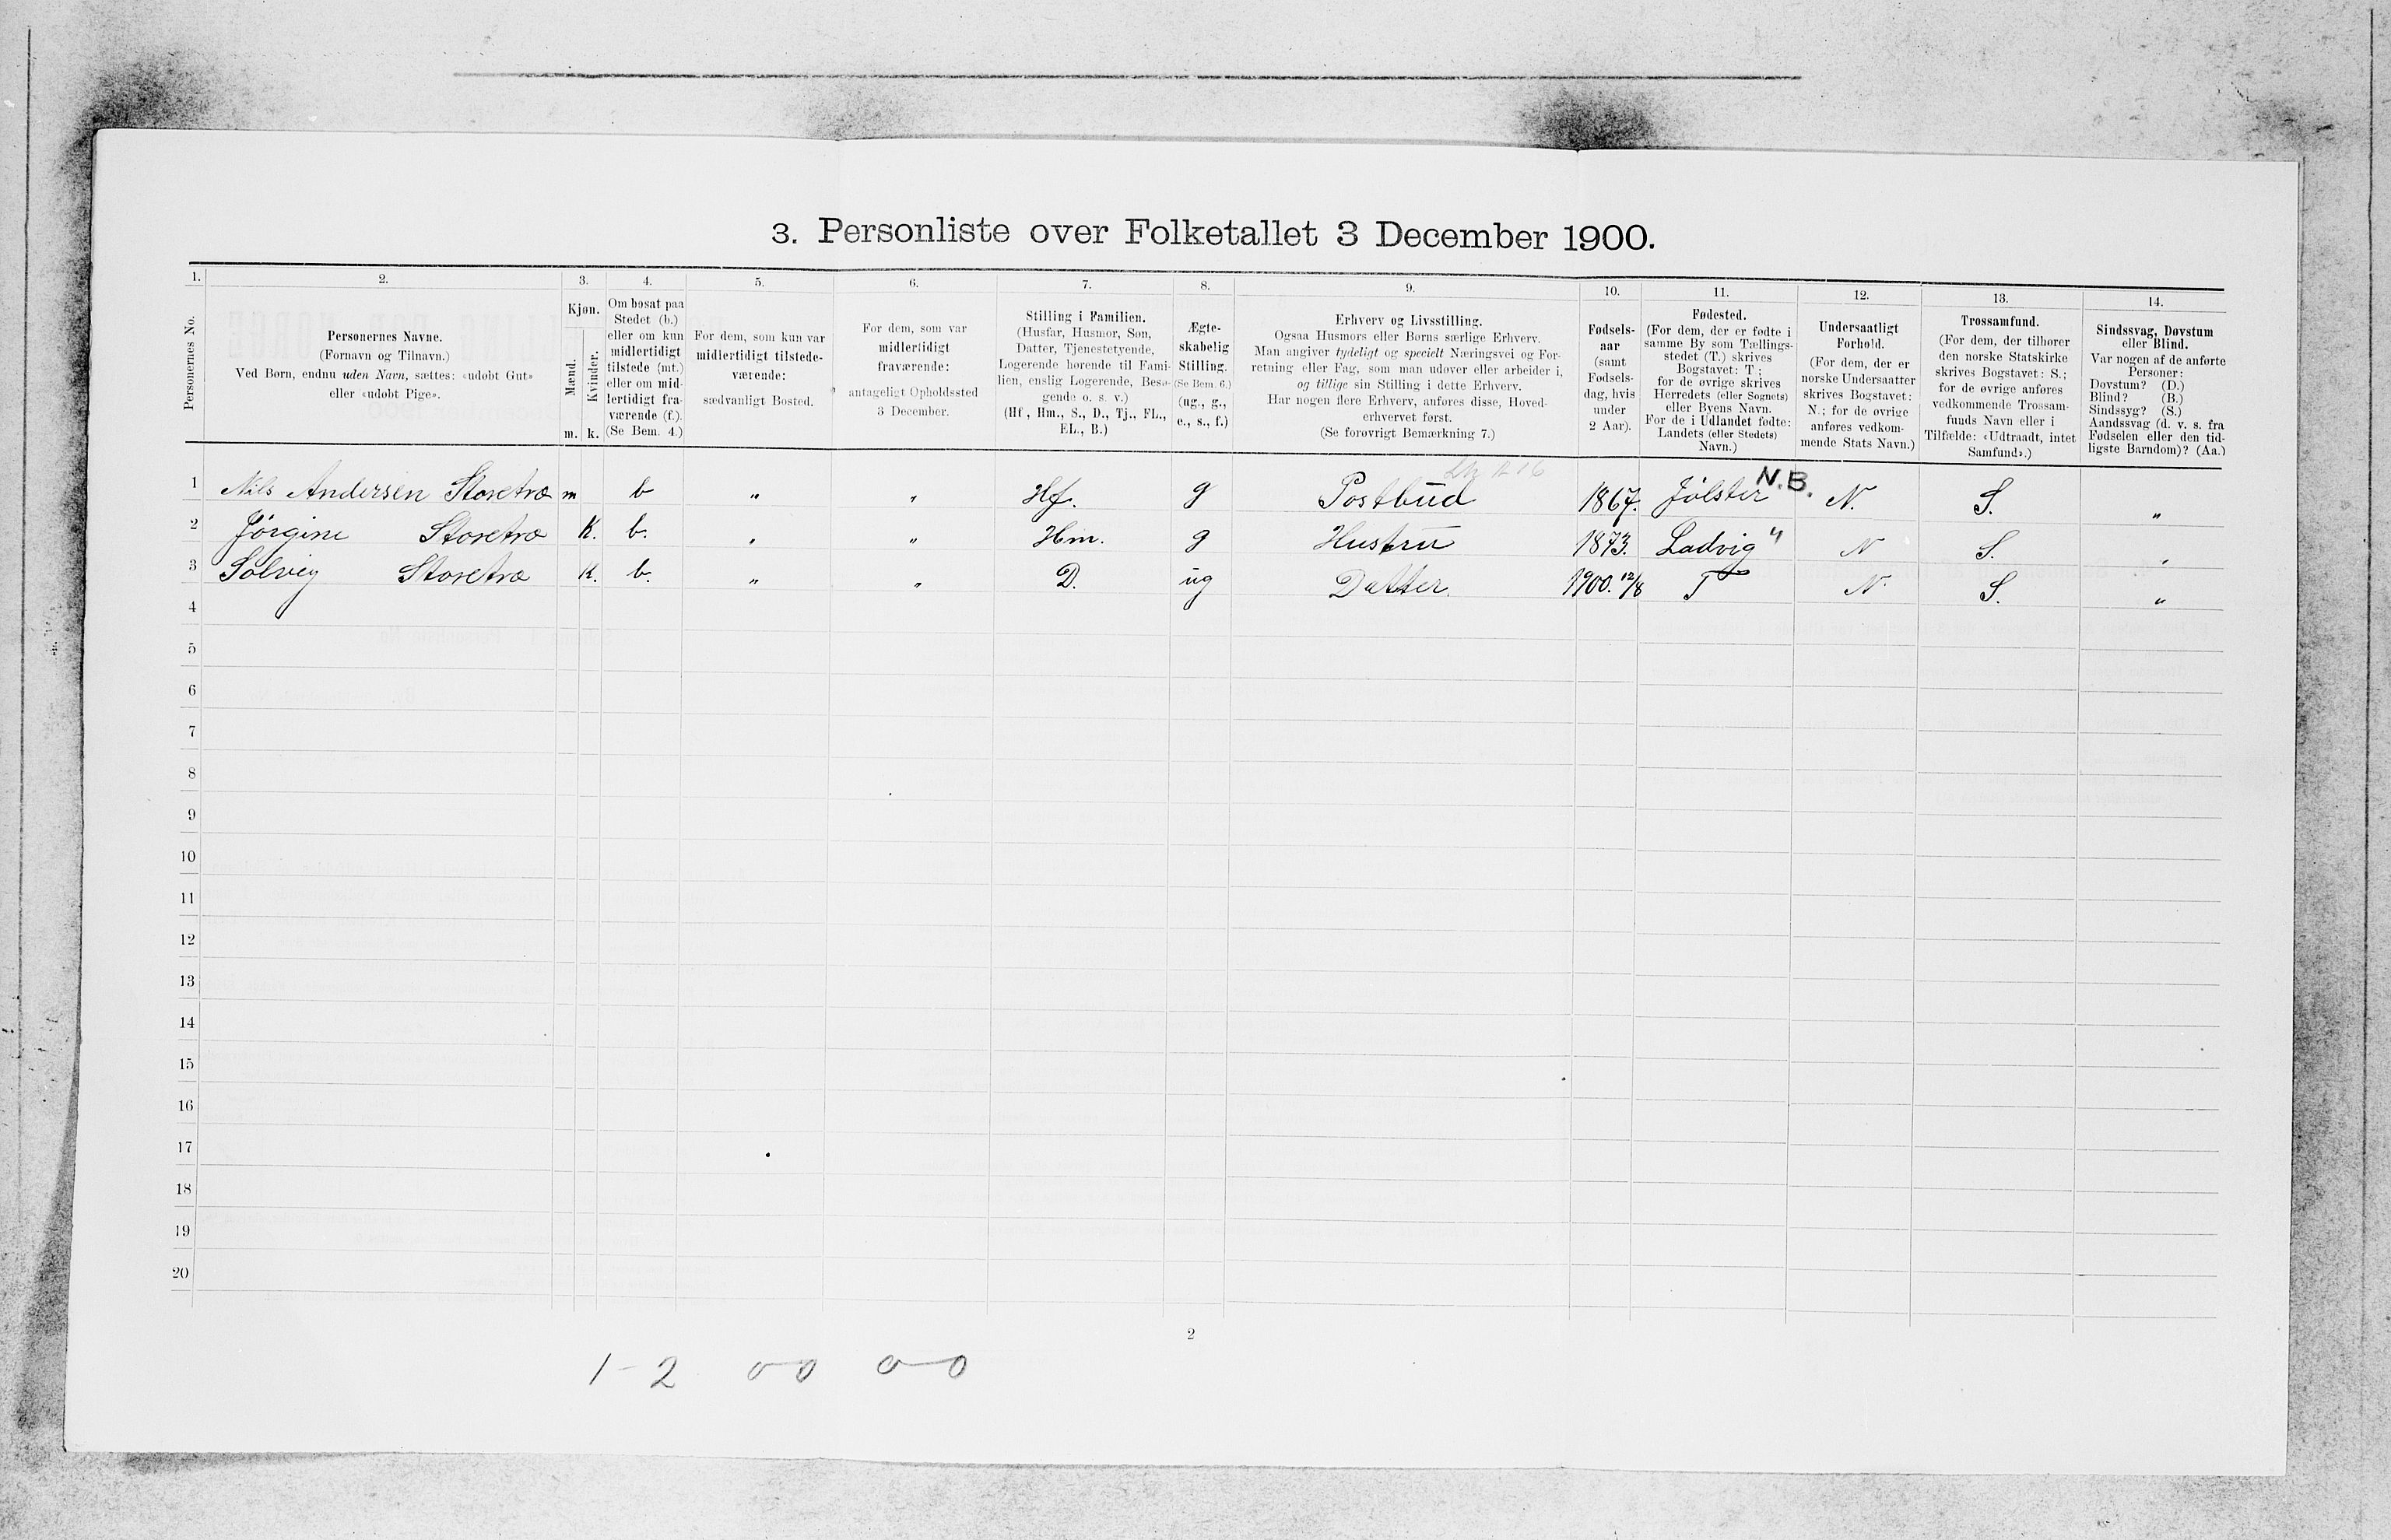 3. Personliste over Folketallet 3 December 1900.
1. 2. 3. 4. 5. 6. 7. 8. 9. 10. 11. 12. 13. 14.
Personernes No.
Personernes Navne.
(Fornavn og Tilnavn.)
Ved Børn, endnu uden Navn, sættes: «udøbt Gut»
eller «udøbt Pige».
Kjøn.
Mænd.
Kvinder.
m. k.
Om bosat paa
Stedet (b.)
eller om kun
midlertidigt
tilstede (mt.)
eller om mid-
lertidigt fra-
værende (f.).
(Se Bem. 4.)
For dem, som kun var
midlertidigt tilstede-
værende:
sædvanligt Bosted.
For dem, som var
midlertidigt
fraværende:
antageligt Opholdssted
3 December.
Stilling i Familien.
(Husfar, Husmor, Søn,
Datter, Tjenestetyende,
Logerende hørende til Fami-
lien, enslig Logerende, Besø-
gende o. s. v.)
(Hf., Hm., S., D., Tj., FL.,
EL., B.)
Ægte-
skabelig
Stilling.
(Se Bem. 6.)
(ug., g.,
e., s., f.)
Erhverv og Livsstilling.
Ogsaa Husmors eller Børns særlige Erhverv.
Man angiver tydeligt og specielt Næringsvei og For-
retning eller Fag, som man udøver eller arbeider i,
og tillige sin Stilling i dette Erhverv.
Har nogen flere Erhverv, anføres disse, Hoved-
erhvervet først.
(Se forøvrigt Bemærkning 7.)
Fødsels-
aar
(samt
Fødsels-
dag, hvis
under
2 Aar).
Fødested.
(For dem, der er fødte i
samme By som Tællings-
stedet (T.) skrives
Bogstavet: T;
for de øvrige skrives
Herredets (eller Sognets)
eller Byens Navn.
For de i Udlandet fødte:
Landets (eller Stedets)
Navn.)
Undersaatligt
Forhold.
(For dem, der er
norske Undersaatter
skrives Bogstavet:
N.; for de øvrige
anføres vedkom-
mende Stats Navn.)
Trossamfund.
(For dem, der tilhører
den norske Statskirke
skrives Bogstavet: S.;
for de øvrige anføres
vedkommende Trossam-
funds Navn eller i
Tilfælde: «Udtraadt, intet
Samfund».)
Sindssvag, Døvstum
eller Blind.
Var nogen af de anførte
Personer:
Døvstum? (D.)
Blind? (B.)
Sindssyg? (S.)
Aandssvag (d. v. s. fra
Fødselen eller den tid-
ligste Barndom)? (Aa.)
1 Nils Andersen Storetræ m b " " Hf. g Postbud 1867. Jølster N.B. N. S. "
2 Jørgine Storetræ K. b. " " Hm. g Hustru 1873. Ladvig " N S. "
3 Solveig Storetræ K. b. " " D. ug Datter. 1900. 12/8 T N. S. "
4
5
6
7
8
9
10
11
12
13
14
15
16
17
18
19
20
2
1-2 00 0-0